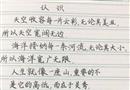 认识
天空收容每一片云彩,无论其美丑
所以天空宽阔无边
海洋接纳每一条河流,无论其大小,
所以海洋宽广无限
人生就像一座山,重要的不
是它的高低,而在于灵秀